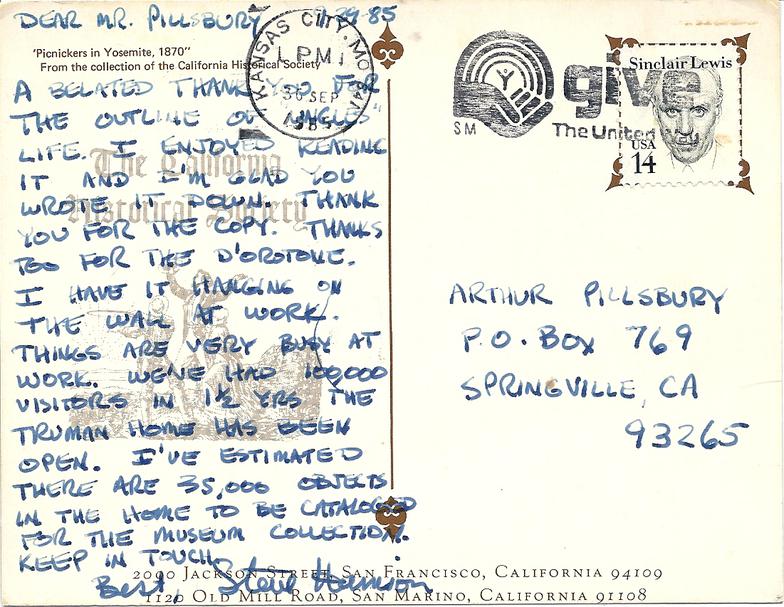 DEAR MR. PILLSBURY 9-29-85
"Picnickers in Yosemite, 1870"
From the collection of the California Historical Society
A BELATED THANK YOU FOR
THE OUTLINE OF "UNCLES"
LIFE. I ENJOYED READING
IT AND I'M GLAD YOU
WROTE IT DOWN. THANK
YOU FOR THE COPY. THANKS
TOO FOR THE D'OROTONE.
I HAVE IT HANGING ON
THE WALL AT WORK.
THINGS ARE VERY BUSY AT
WORK. WE'VE HAD 100,000
VISITORS IN 1½ YRS THE
TRUMAN HOME HAS BEEN
OPEN. I'VE ESTIMATED
THERE ARE 35,000 OBJECTS
IN THE HOME TO BE CATALOGED
FOR THE MUSEUM COLLECTION.
KEEP IN TOUCH.
Best, Steve Harrison
The California
Historical Society
2090 JACKSON STREET, SAN FRANCISCO, CALIFORNIA 94109
1120 OLD MILL ROAD, SAN MARINO, CALIFORNIA 91108
KANSAS CITY, MO 641
1 PM
30 SEP
1985
SM
give
The United Way
Sinclair Lewis
USA
14
ARTHUR PILLSBURY
P.O. BOX 769
SPRINGVILLE, CA
93265